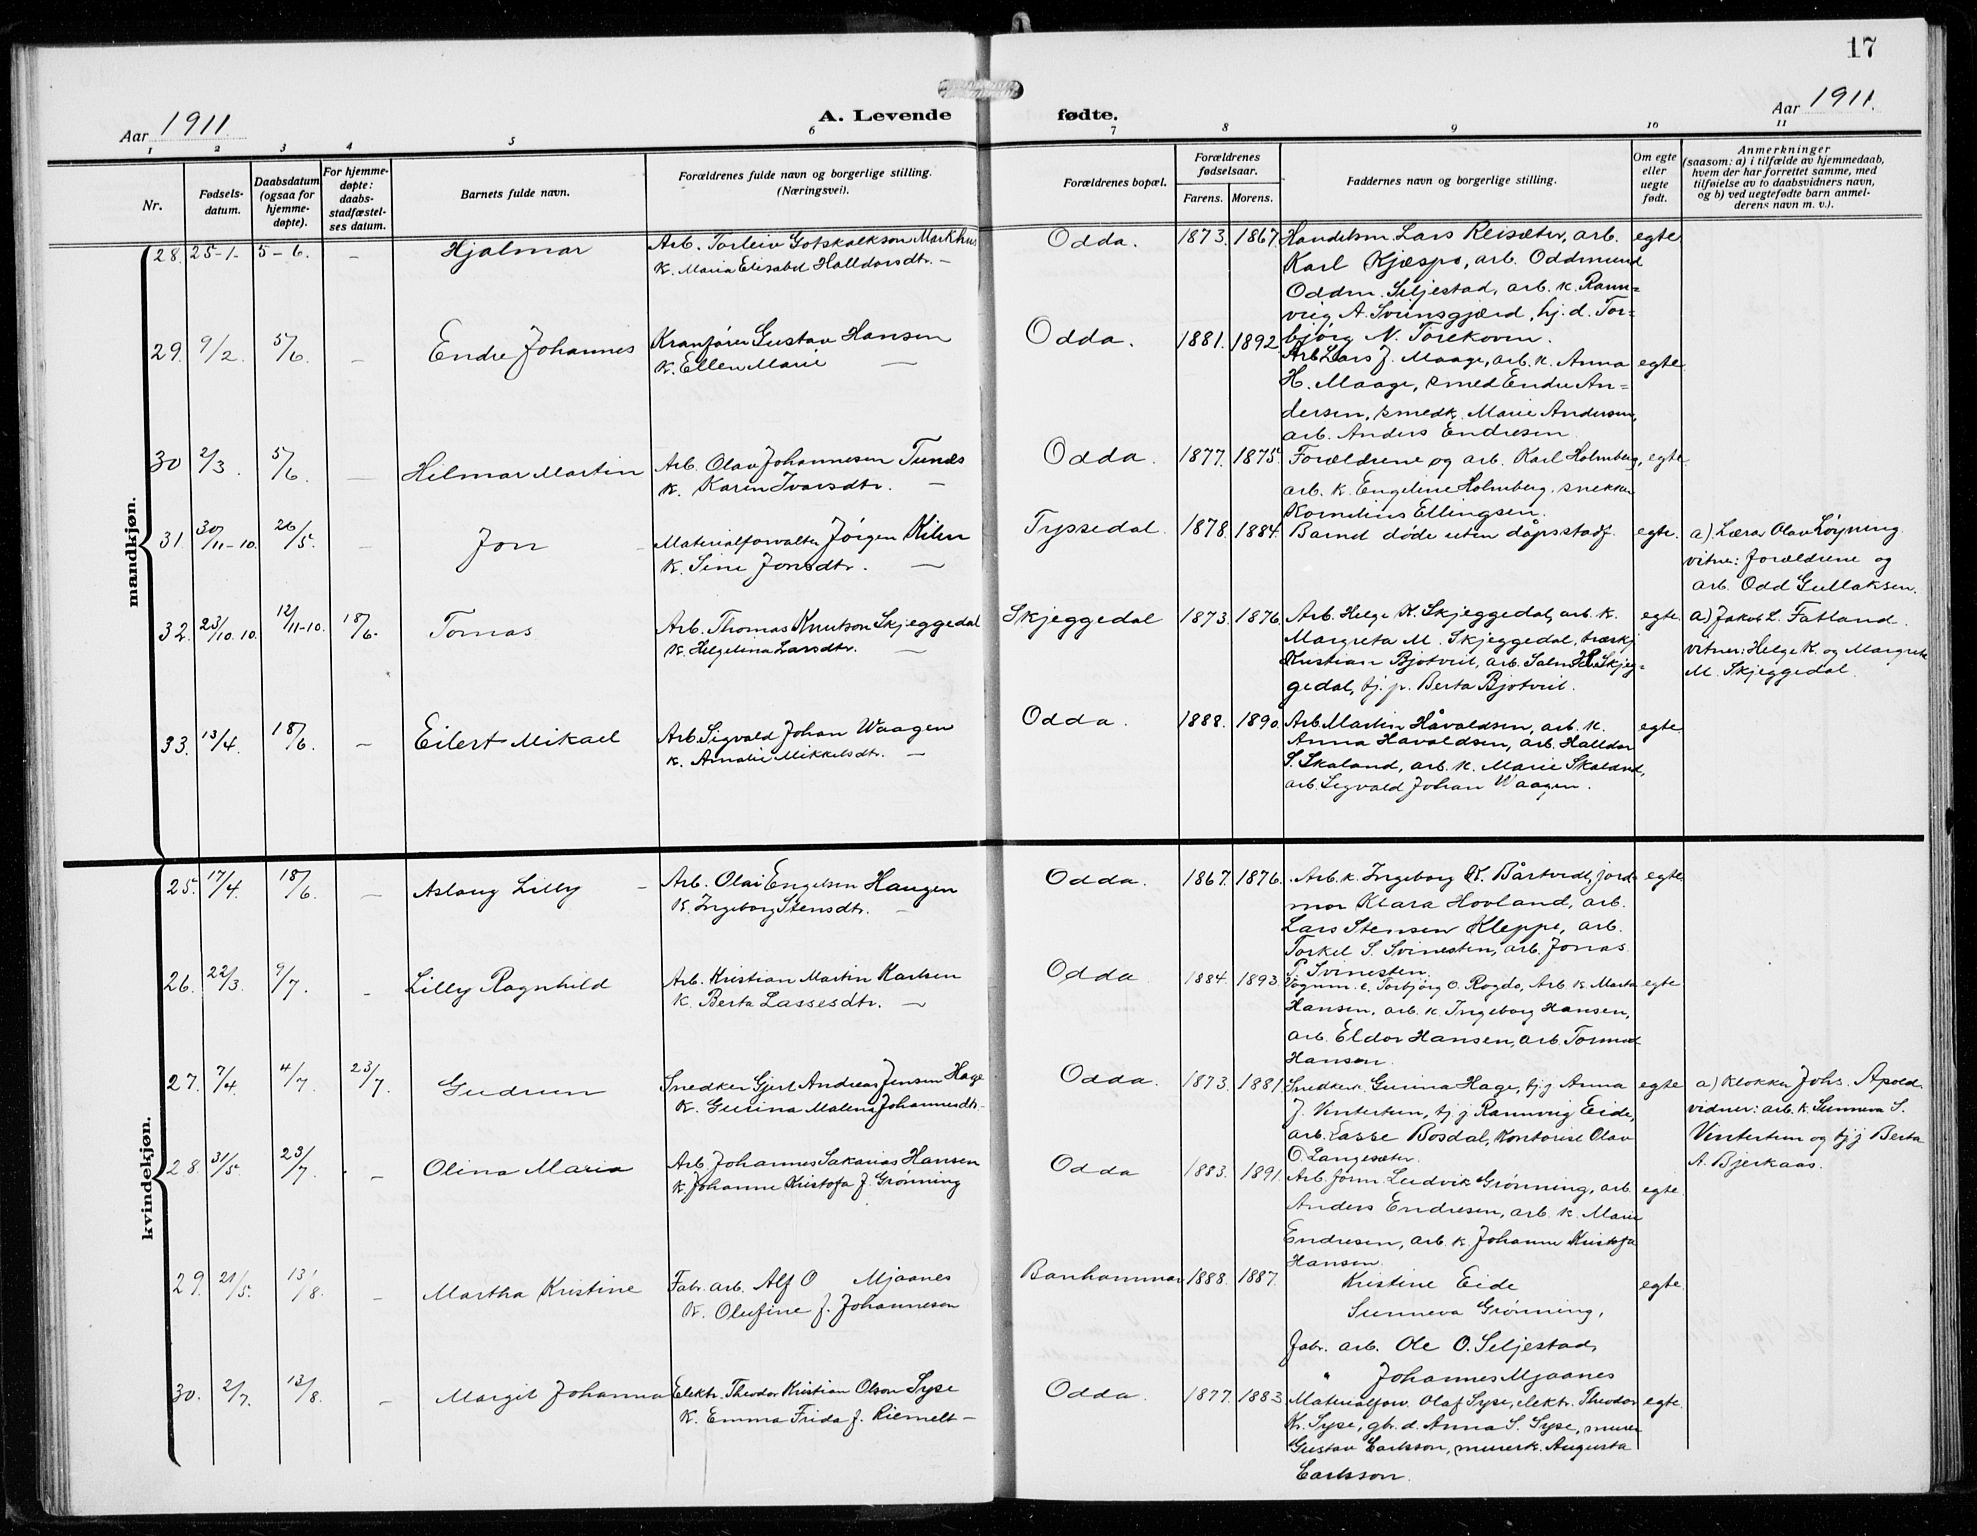 17
Aar 1911.
A. Levende fødte.
Aar 1911.
1 2 3 4 5 6 7 8 9 10 11
Nr.
Fødsels-
datum.
Daabsdatum
(ogsaa for
hjemme-
døpte).
For hjemme-
døpte:
daabs-
stadfæstel-
ses datum.
Barnets fulde navn.
Forældrenes fulde navn og borgerlige stilling.
(Næringsvei).
Forældrenes bopæl.
Forældrenes
fødselsaar.
Farens. Morens.
Faddernes navn og borgerlige stilling.
Om egte
eller
uegte
født.
Anmerkninger
(saasom: a) i tilfælde av hjemmedaab,
hvem der har forrettet samme, med
tilføielse av to daabsvidners navn,
og b) ved uegtefødte barn anmel-
derens navn m. v.).
mandkjøn.
28. 25-1- 5-6. - Hjalmar
Arb. Torleiv Gotskalkson Markhus
K. Maria Elisabet Halldorsdtr. -
Odda. 1873. 1867.
Handelsm. Lars Reisæter, arb.
Karl Kjæspo, arb. Oddmund
Oddm. Seljestad, arb. k. Rann-
veig A. Svunsgjærd, hj. d. Tor-
bjørg N. Torekoven.
egte
29. 9/2. 5/6. - Endre Johannes
Kranfører Gustav Hansen
K. Ellen Marie -
Odda. 1881. 1892
Arb. Lars J. Maage, arb. k. Anna
H. Maage, smed Endre An-
dersen, smedk. Marie Andersen,
arb. Anders Endresen.
egte
30 2/3. 5/6. - Hilmar Martin
Arb. Olav Johannesen Tunæs
K. Karen Ivarsdtr. -
Odda. 1877. 1875.
Forældrene og arb. Karl Holmberg,
arb. k. Engeline Holmberg, snekker
Kornelius Ellingsen.
egte
31. 30/11-10. 26/5. - Jon -
Materialforvalter Jørgen Kilen
K. Sine Jonsdtr. -
Tyssedal. 1878. 1884.
Barnet døde uten dåpsstadf.
egte.
a) Lærar Olav Løyning
vitne: Forældrene og
arb. Odd Gullaksen.
32. 23/10.10. 12/11-10. 18/6. Tomas
Arb. Thomas Knutson Skjeggedal
K. Helgelina Larsdtr. -
Skjeggedal 1873. 1876.
Arb. Helge K. Skjeggedal, arb. k.
Margreta M. Skjeggedal, træskj.
Kristian Bjotveit, arb. Salm. H. Skjeg-
gedal, tj. p. Berta Bjotveit.
egte.
a) Jakob L. Fatland.
vitner: Helge K. og Margrete
M. Skjeggedal.
33. 13/4. 18/6. - Eilert Mikael
Arb. Sigvald Johan Waagen
K. Amalie Mikkelsdtr. -
Odda. 1888. 1890.
Arb. Martin Håvaldsen, arb. k.
Anna Havaldsen, arb. Halldor
S. Skaland, arb. k. Marie Skaland,
arb. Sigvald Johan Waagen.
egte
kvindekjøn.
25. 17/4. 18/6. - Aslaug Lilly -
Arb. Olai Engelsen Haugen
K. Ingeborg Stensdtr. -
Odda. 1867. 1876.
Arb. k. Ingeborg K. Bårtvedt, jord-
mor Klara Hovland, arb.
Lars Stensen Kleppe, arb.
Torkel S. Svinesten, arb. Jonas
T. Svinesten.
egte
26. 22/3. 9/7. - Lilly Ragnhild
Arb. Kristian Martin Karlsen
K. Berta Lassesdtr. -
Odda 1884. 1893.
Vognm. e. Torbjørg O. Rogde, Arb. k. Marta
Hansen, arb. k. Ingeborg Hansen,
arb. Eldor Hansen, arb. Tormod
Hansen.
egte
27. 7/4. 4/7. 23/7. Gudrun
Snedker Gjert Andreas Jensen Hage
K. Gurina Malena Johannesdtr.
Odda. 1873. 1881.
Snedkerk. Gurina Hage, tj.j. Anna
J. Vintertun, tj.j. Rannveig Eide,
arb. Lasse Bosdal, Kontorist Olav
O. Langesæter.
egte
a) Klokker Johs. Apold.
vidner: arb. k. Sunneva S.
Vintertun og tj.j. Berta
A. Bjerkaas.
28. 31/5. 23/7. - Olina Maria
Arb. Johannes Sakarias Hansen
K. Johanne Kristofa f. Grønning
Odda 1883. 1891.
Arb. form. Ludvik Grønning, arb.
Anders Endresen, arb. k. Marie
Endresen, arb. k. Johanne Kristofa
Hansen.
egte.
29. 21/5. 13/8. - Martha Kristine
Fabr. arb. Alf O Mjaanes
K. Olufine f. Johannesen
Banhammar 1888. 1887.
Kristine Eide
Sunneva Grønning,
Fabr. arb. Ole O. Seljestad,
" Johannes Mjaanes
egte.
30. 2/7. 13/8. - Margit Johanna
Elektr. Theodor Kristian Olson Syse
K. Emma Frida f. Riemelt -
Odda. 1877. 1883
Materialforv. Olaf Syse, elektr. Theodor
Kr. Syse, gbr. d. Anna S. Syse, murer
Gustav Carlsson, murerk. Augusta
Carlsson.
egte.